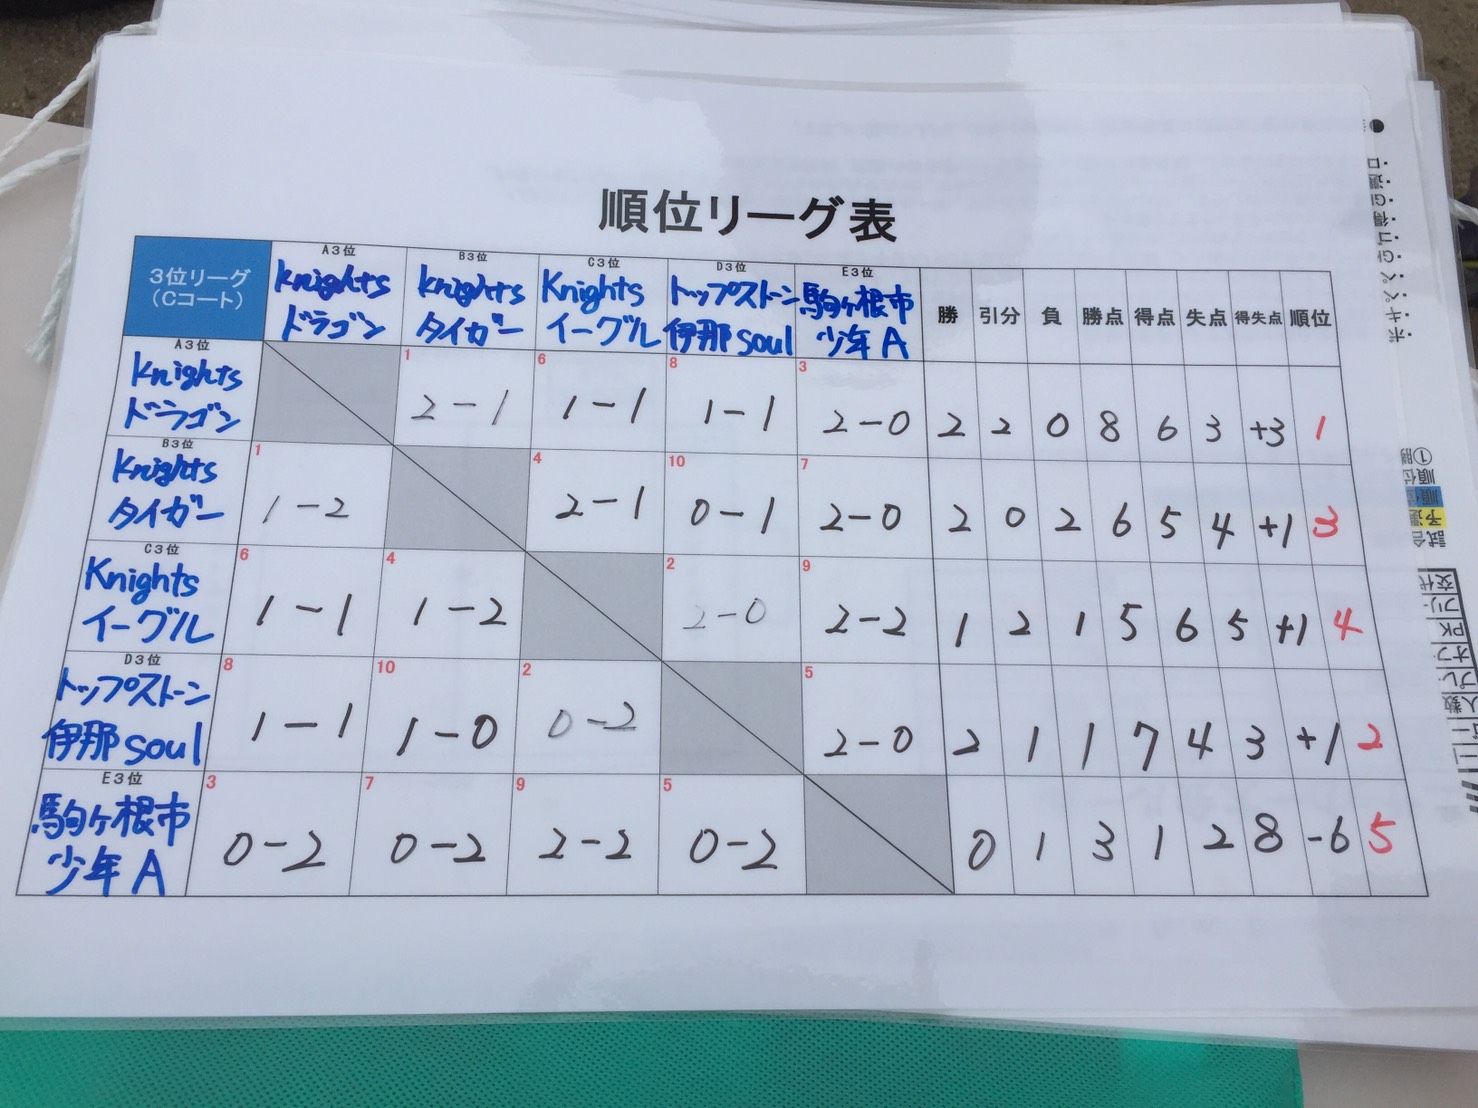 順位リーグ表
3位リーグ
(Cコート)
A3位
Knights
ドラゴン
B3位
Knights
タイガー
C3位
Knights
イーグル
D3位
トップストーン
伊那 soul
E3位
駒ヶ根市
少年 A
勝 引分 負 勝点 得点 失点 得失点 順位
A3位
Knights
ドラゴン
1 2-1 6 1-1 8 1-1 3 2-0 2 2 0 8 6 3 +3 1
B3位
Knights
タイガー
1 1-2 4 2-1 10 0-1 7 2-0 2 0 2 6 5 4 +1 3
C3位
Knights
イーグル
6 1-1 4 1-2 2 2-0 9 2-2 1 2 1 5 6 5 +1 4
D3位
トップストーン
伊那 soul
8 1-1 10 1-0 2 0-2 5 2-0 2 1 1 7 4 3 +1 2
E3位
駒ヶ根市
少年 A
3 0-2 7 0-2 9 2-2 5 0-2 0 1 3 1 2 8 -6 5